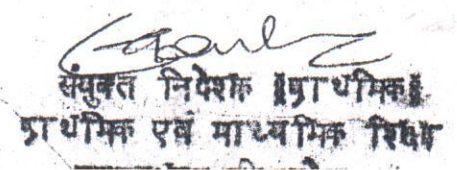 संयुक्त निदेशक ॥प्राथमिक॥
प्राथमिक एवं माध्यमिक शिक्षा